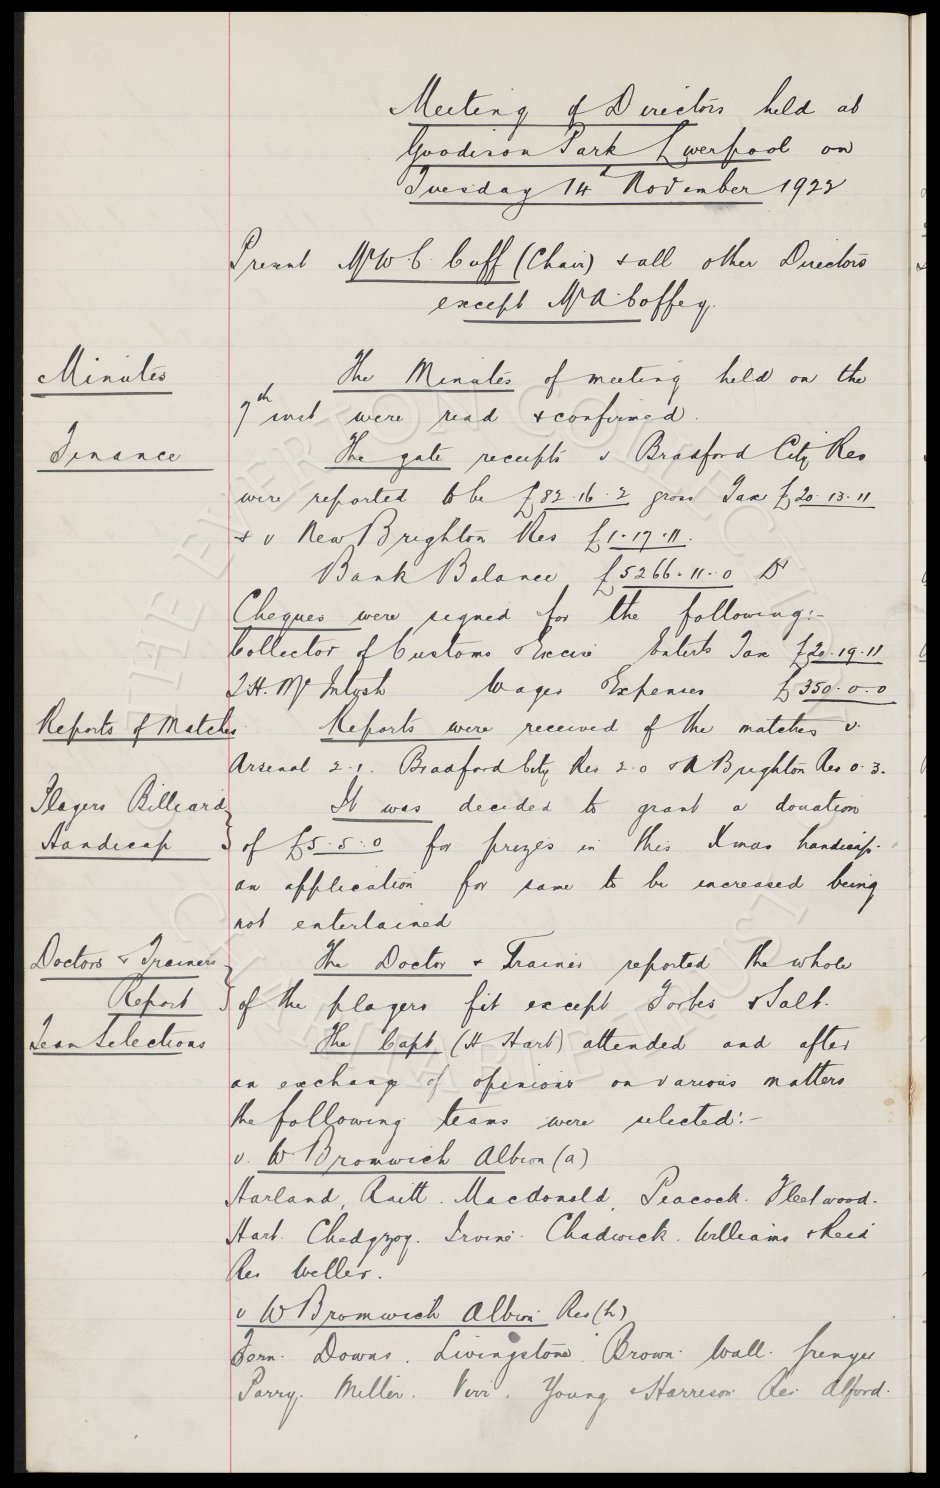 Meeting of Directors held at
Goodison Park Liverpool on
Tuesday 14th November 1922
Present Mr W.C. Cuff (Chair) & all other Directors
except Mr A Coffey.
Minutes
The Minutes of meeting held on the
7th inst were read & confirmed.
Finance
The gate receipts v Bradford City Res
were reported to be £82.16.2 gross Tax £20.13.11
& v New Brighton Res £1.17.11.
Bank Balance £5266.11.0 Dr
Cheques were signed for the following:-
Collector of Customs & Excise Enterts Tax £20.19.11
T.H. McIntosh Wages Expenses £350.0.0
Reports of Matches
Reports were received of the matches v.
Arsenal 2.1. Bradford City Res 2.0 & N Brighton Res 0.3.
Players Billiard
Handicap
It was decided to grant a donation
of £5.5.0 for prizes in this Xmas handicap.
an application for same to be increased being
not entertained
Doctors & Trainers
Report
The Doctor & Trainer reported the whole
of the players fit except Forbes & Salt.
Team Selections
The Capt (H Hart) attended and after
an exchange of opinions on various matters
the following teams were selected:-
v. W Bromwich Albion (a)
Harland, Raitt. Macdonald, Peacock. Fleetwood.
Hart. Chedgzoy. Irvine. Chadwick. Williams & Reid
Res Weller.
v W Bromwich Albion Res (h)
Fern. Downs. Livingstone. Brown. Wall.
Parry. Miller. Virr. Young & Harrison Res. Alford.
THE EVERTON COLLECTION
CHARITABLE TRUST